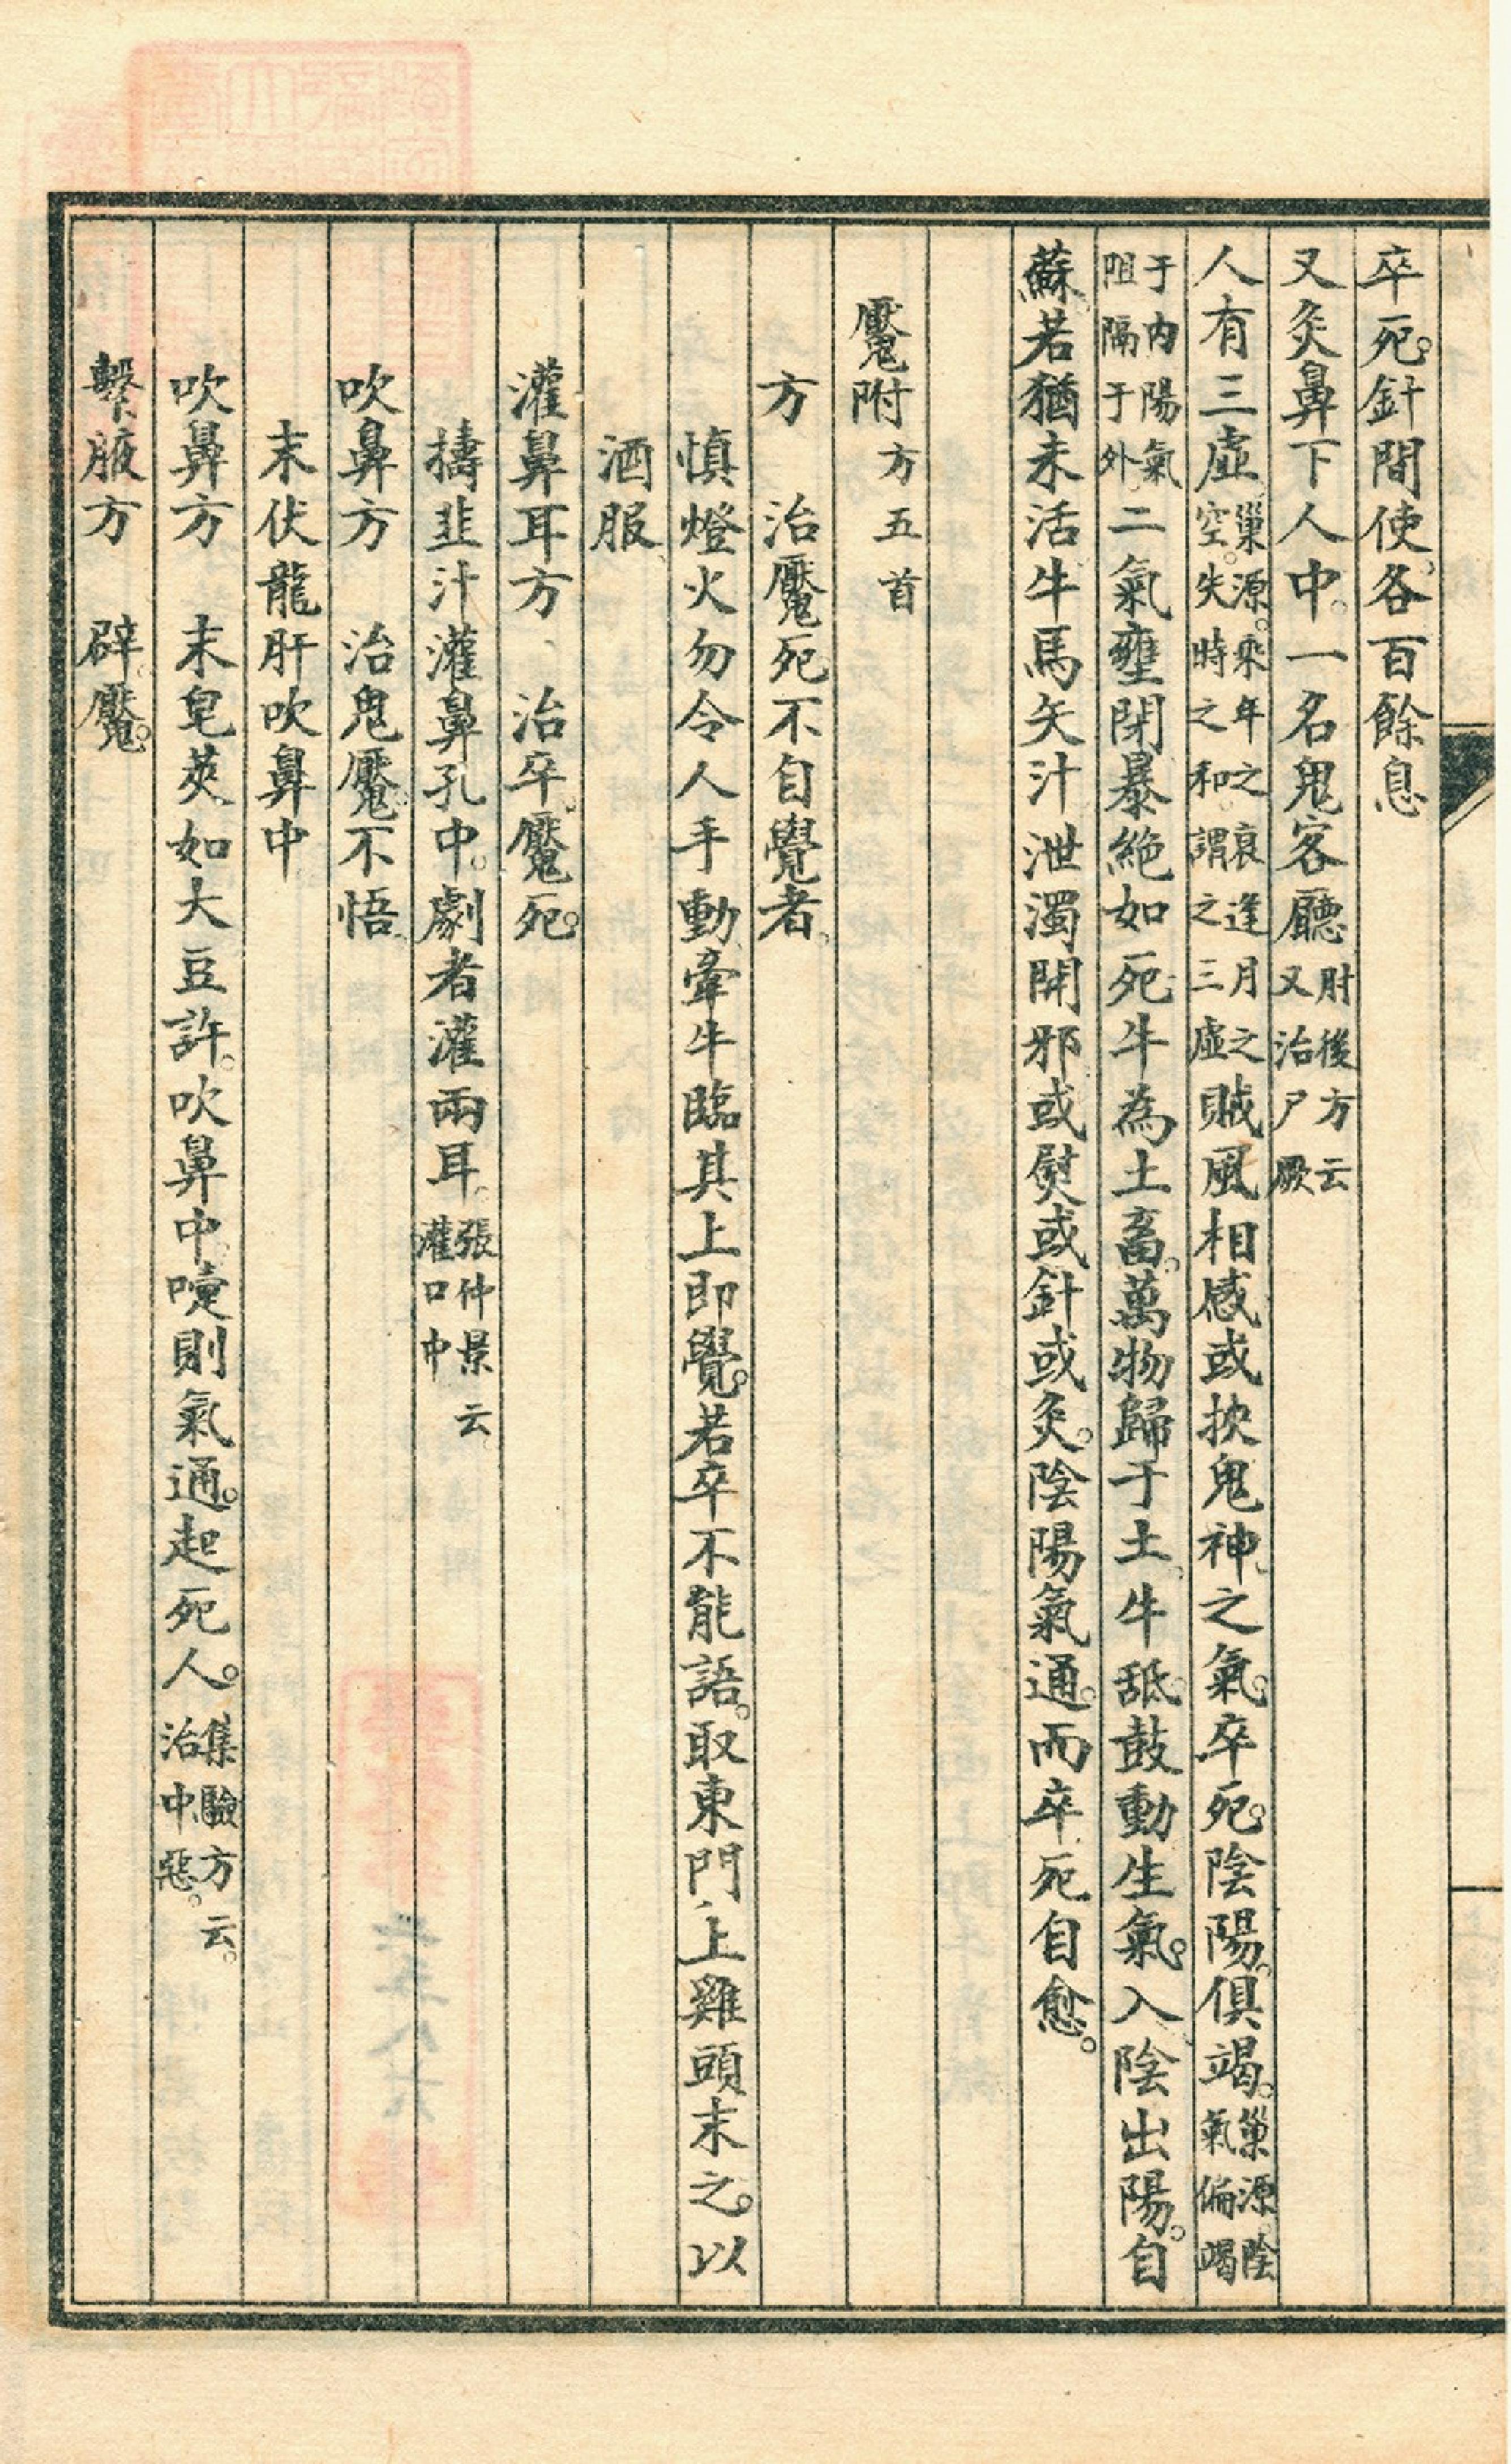 卒死。針間使。各百餘息
又灸鼻下人中。一名鬼客廳肘後方云又治尸厥
人有三虛巢源。乘年之衰逢月之空。失時之和。謂之三虛賊風相感或挾鬼神之氣。卒死。陰陽。俱竭。巢源。陰氣偏竭
于內陽氣阻隔于外二氣壅閉暴絕如死牛為土畜。萬物歸于土牛舐鼓動生氣。入陰出陽。自
蘇若猶未活牛馬矢汁泄濁開邪或熨或針或灸。陰陽氣通。而卒死自愈。
魘附方五首
方　治魘死不自覺者。
慎燈火勿令人手動牽牛臨其上即覺。若卒不能語。取東門上雞頭末之。以
酒服
灌鼻耳方　治卒魘死。
擣韭汁灌鼻孔中。劇者灌兩耳。張仲景云灌口中
吹鼻方　治鬼魘不悟
末伏龍肝吹鼻中
吹鼻方　末皂莢如大豆許。吹鼻中。嚏則氣通。起死人。集驗方云。治中惡。
繫腋方　辟魘。